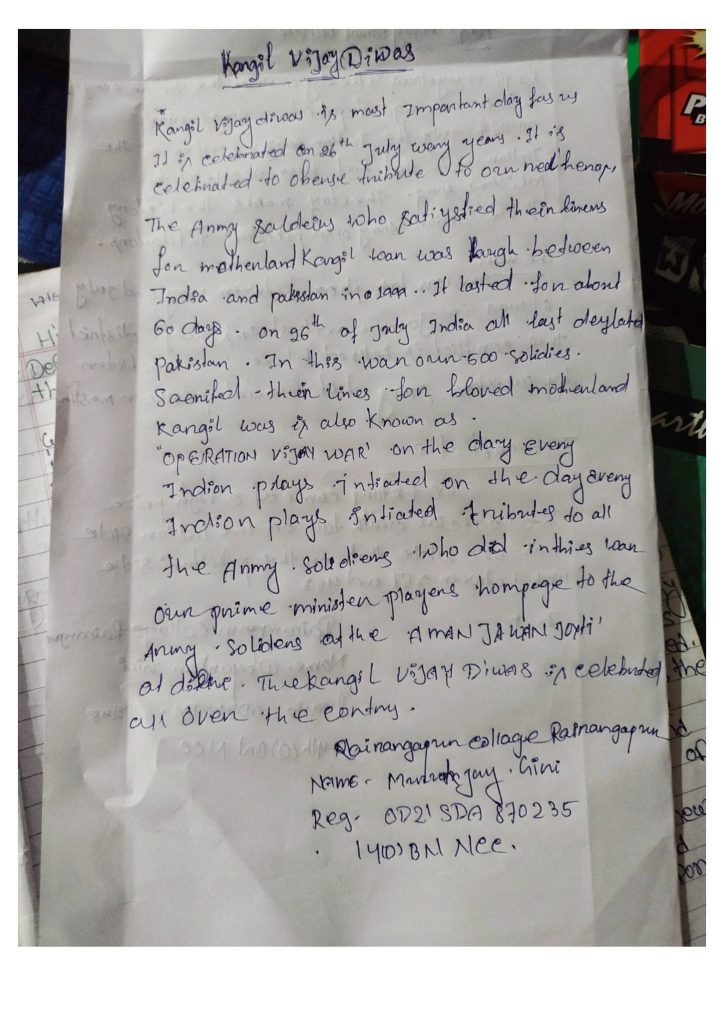 Kangil Vijay Diwas
Kangil Vijay diwas is most Important day for us
It is celebnated on 26th July wany years. It is
celebnated to obense tnibute to oun ned henos,
The Anmy soldeins who satiystied thein linens
fon mothenland Kangil wan was laugh between
India and pakistan in 1999.. It lasted fon about
60 days. on 26th of July India all last deylated
pakistan. In this wan oun 500 solidies.
Sacnifed thein lines fon bloved mothenland
Kangil was is also known as.
"OPERATION VIJAY WAR' on the day Eveny
Indion plays intiated on the day eveny
Indion plays intiated tnibutes to all
the Anmy solidiens who did in thies wan
Oun pnime ministen playens hompage to the
Anmy solidens at the 'AMAN JAWAN JOYTI'
at. The kangil VIJAY DIWAS is celebnated
all oven the contny.
Rainangapun collage Rainangapun
NAME - Gini
Reg- OD21SDA 870235
BN Ncc.
Hi
De
th
P
B
M
art
ed.
the
of
d